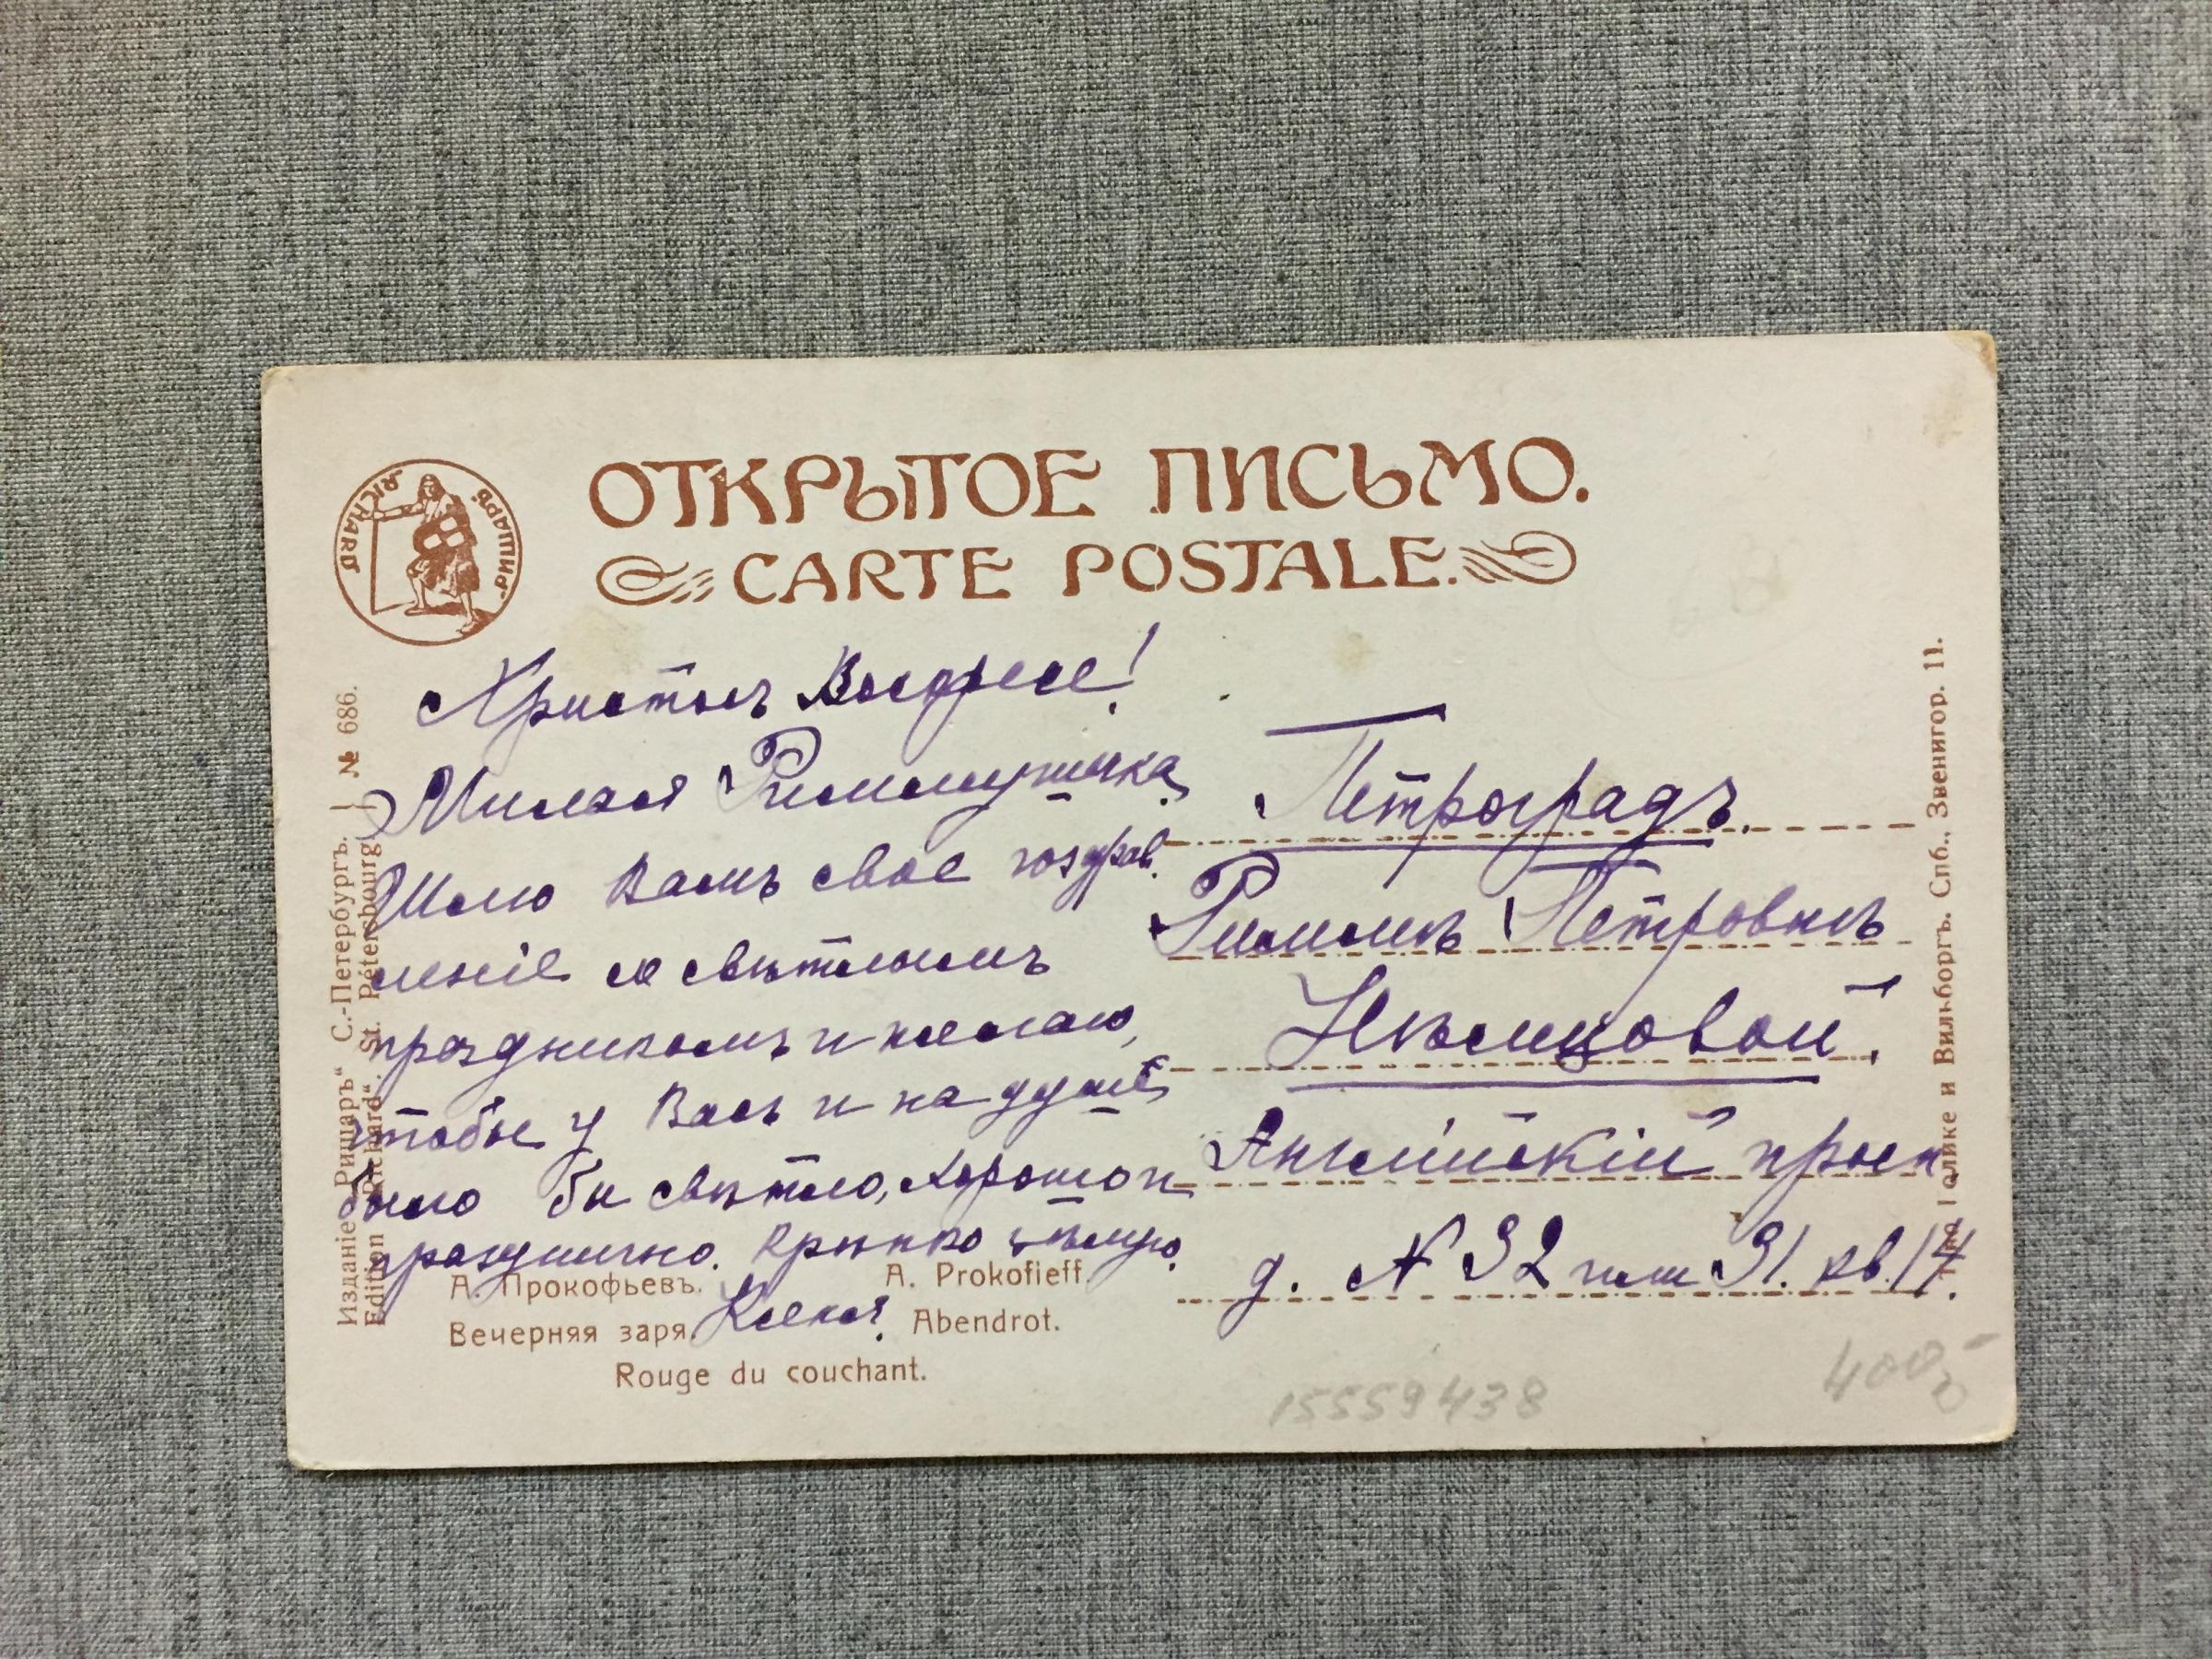 ОТКРЫТОЕ ПИСЬМО.
CARTE POSTALE.
RICHARD. РИШАРЪ.
Христосъ Воскресе!
Милая Риммушичка.
Шлю Вамъ свое поздрав
леніе со свѣтлымъ
праздникомъ и желаю,
чтобы у Васъ и на душѣ
было бы свѣтло, хорошо и
празднично. Крѣпко цѣлую.
Ксенія.
Петроградъ.
Риммѣ Петровнѣ
Нѣмцовой.
Англійскій просп
д. № 32 или 31. кв. 17.
А. Прокофьевъ. A. Prokofieff.
Вечерняя заря. Abendrot.
Rouge du couchant.
Изданіе „Ришаръ“ С.-Петербургъ. } № 686.
Edition „Richard“. St. Pétersbourg.
Т-во Голике и Вильборгъ. Спб., Звенигор. 11.
15559438
400